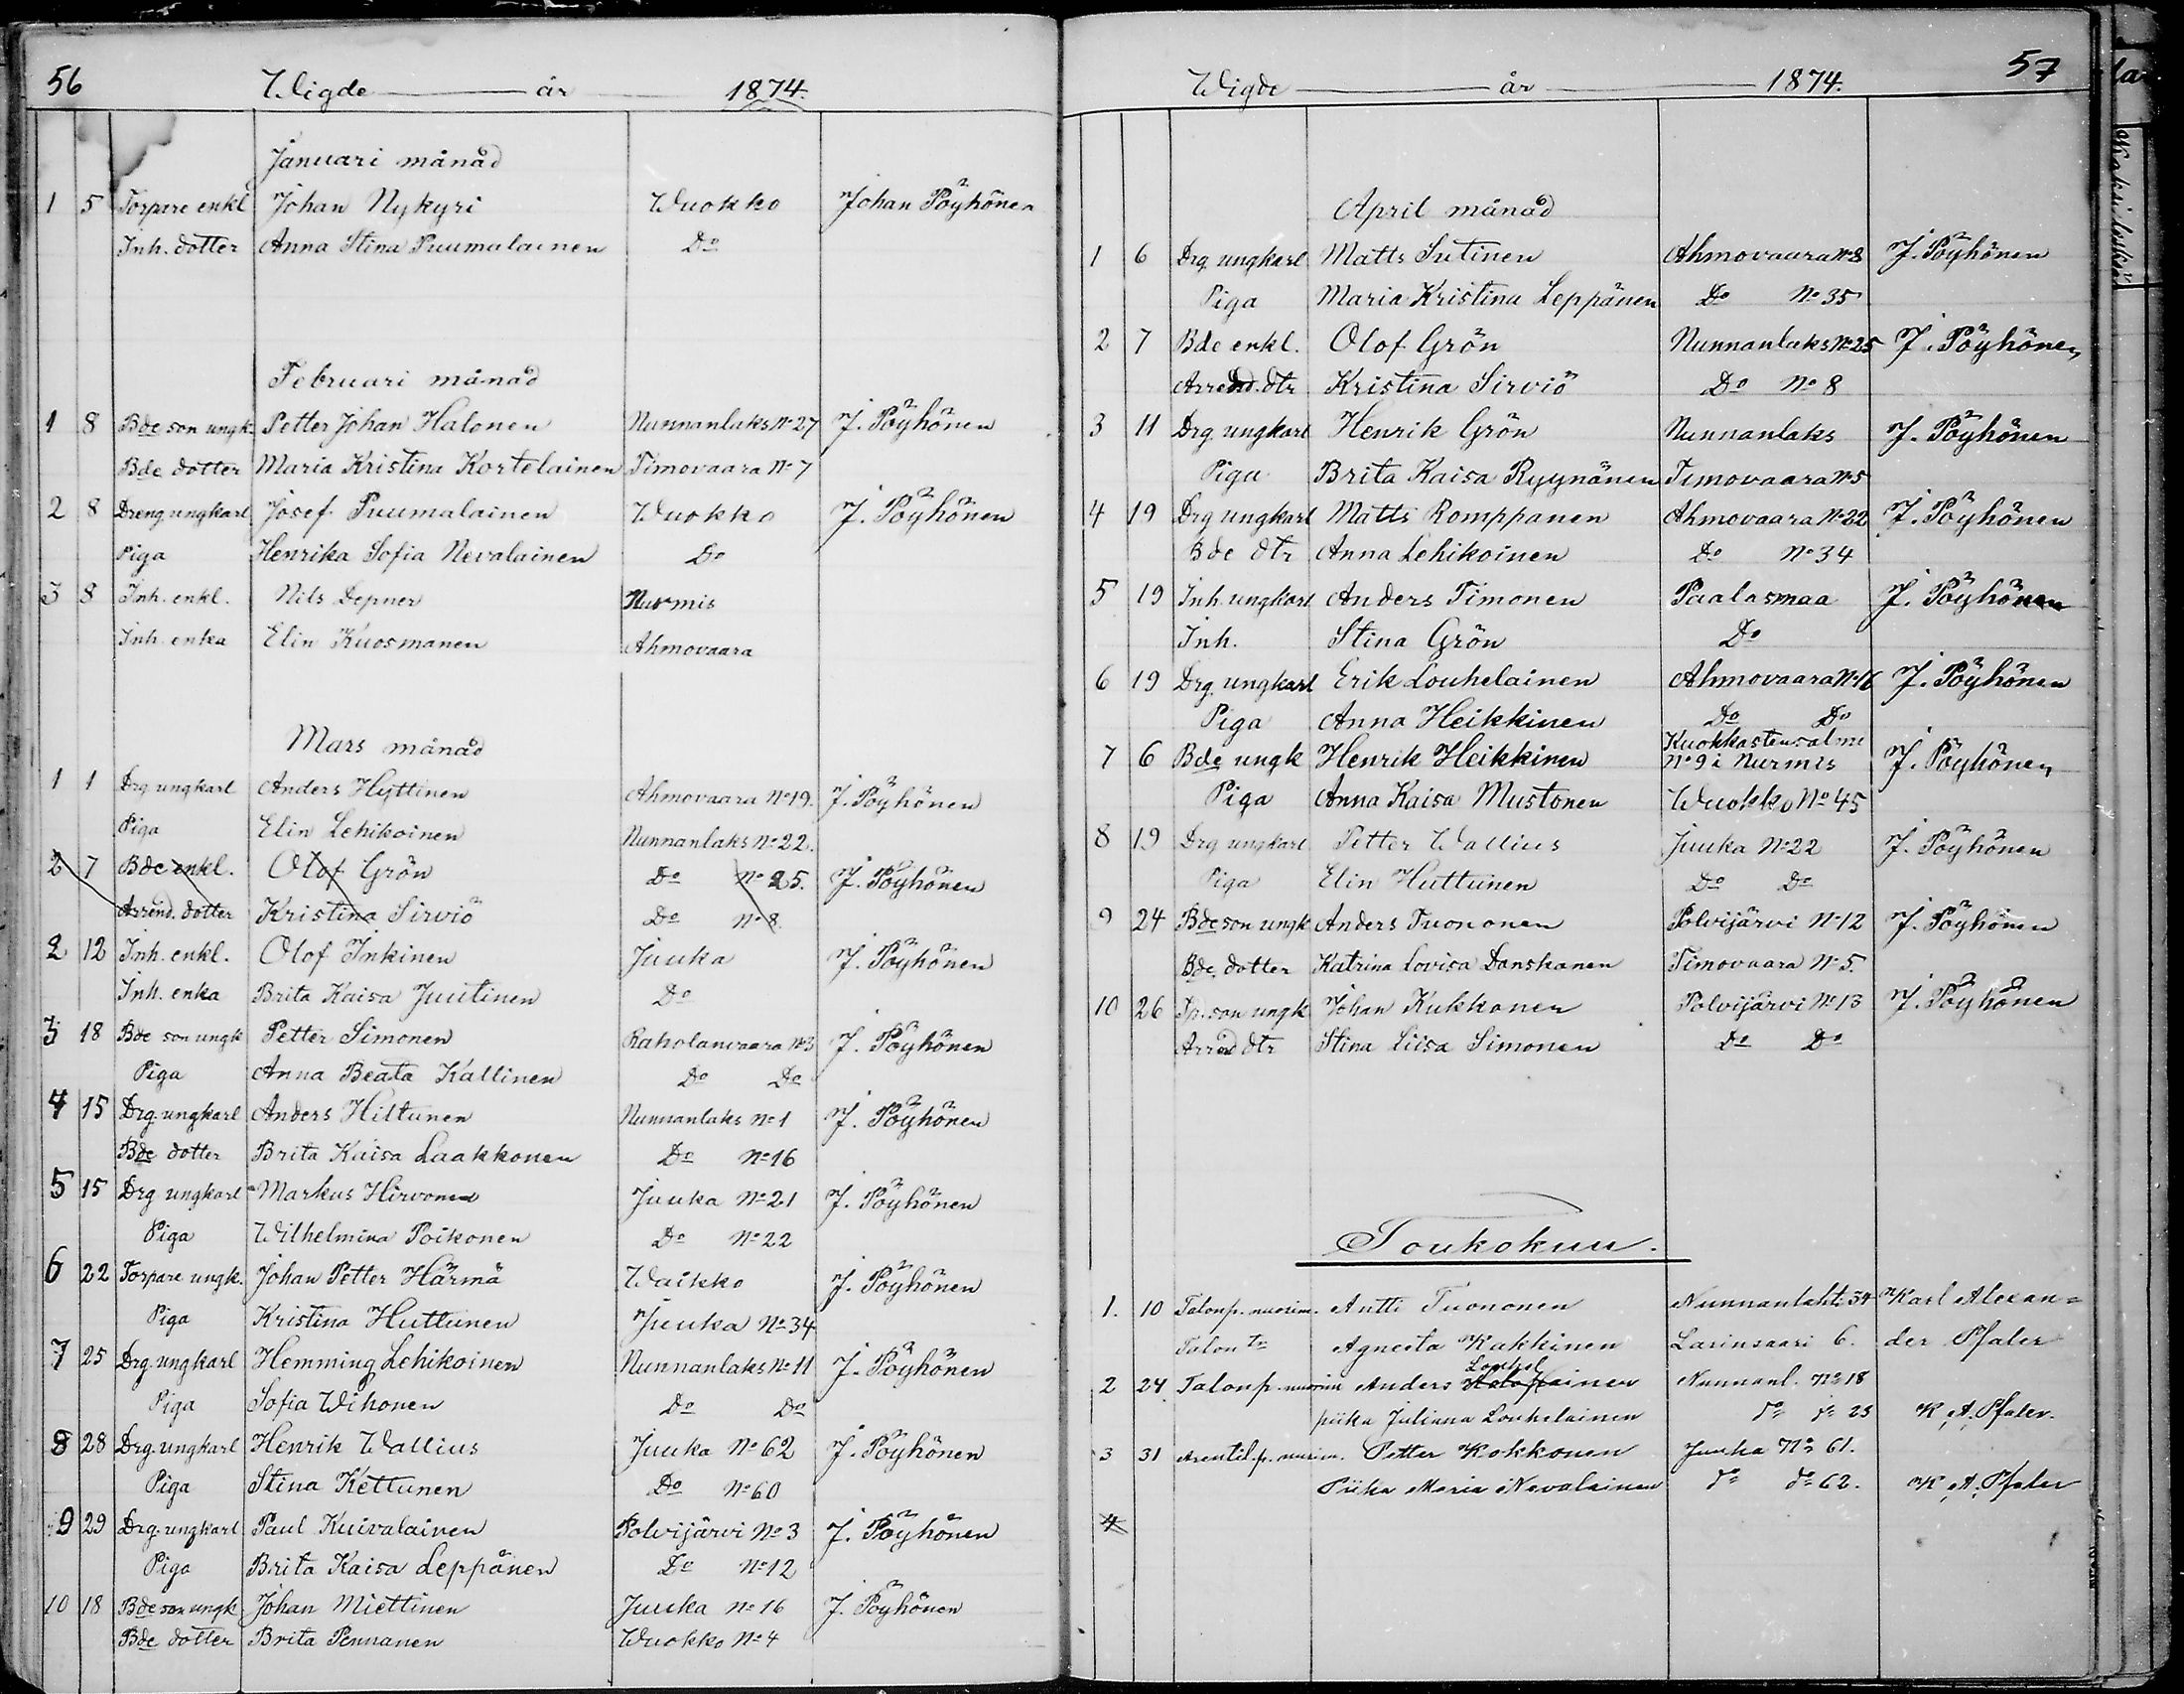 56
Wigde år 1874.
Januari månad
1 5 Torpare enkl Johan Nykyri Wuokko Johan Pöyhönen
Inh. dotter Anna Stina Puumalainen Do
Februari månad
1 8 Bde son ungk Petter Johan Halonen Nunnanlaks No 27 J. Pöyhönen
Bde dotter Maria Kristina Kortelainen Timovaara No 7
2 8 Dreng ungkarl Josef Puumalainen Wuokko J. Pöyhönen
Piga Henrika Sofia Nevalainen Do
3 8 Inh. enkl. Nils Depner Nurmis
Inh. enka Elin Kuosmanen Ahmovaara
Mars månad
1 1 Drg ungkarl Anders Hyttinen Ahmovaara No 19. J. Pöyhönen
Piga Elin Lehikoinen Nunnanlaks No 22.
2 7 Bde enkl. Olof Grön Do No 25. J. Pöyhönen
Arrend. dotter Kristina Sirviö Do No 8.
2 12 Inh. enkl. Olof Inkinen Juuka J. Pöyhönen
Inh. enka Brita Kaisa Juutinen Do
3 18 Bde son ungk Petter Simonen Raholanvaara No 3 J. Pöyhönen
Piga Anna Beata Kallinen Do Do
4 15 Drg. ungkarl Anders Hiltunen Nunnanlaks No 1 J. Pöyhönen
Bde dotter Brita Kaisa Laakkonen Do No 16
5 15 Drg ungkarl Markus Hirvonen Juuka No 21 J. Pöyhönen
Piga Wilhelmina Poikonen Do No 22
6 22 Torpare ungk. Johan Petter Härmä Waikko J. Pöyhönen
Piga Kristina Huttunen Juuka No 34
7 25 Drg. ungkarl Hemming Lehikoinen Nunnanlaks No 11 J. Pöyhönen
Piga Sofia Wihonen Do Do
8 28 Drg. ungkarl Henrik Wallius Juuka No 62 J. Pöyhönen
Piga Stina Kettunen Do No 60
9 29 Drg. ungkarl Paul Kuivalainen Polvijärvi No 3 J. Pöyhönen
Piga Brita Kaisa Leppänen Do No 12
10 18 Bde son ungk Johan Miettinen Juuka No 16 J. Pöyhönen
Bde dotter Brita Pennanen Wuokko No 4
57
Wigde år 1874.
April månad
1 6 Drg. ungkarl Matts Sutinen Ahmovaara No 8 J. Pöyhönen
Piga Maria Kristina Leppänen Do No 35
2 7 Bde enkl. Olof Grön Nunnanlaks No 25 J. Pöyhönen
Arrend. dtr Kristina Sirviö Do No 8
3 11 Drg. ungkarl Henrik Grön Nunnanlaks J. Pöyhönen
Piga Brita Kaisa Ryynänen Timovaara No 5
4 19 Drg ungkarl Matts Romppanen Ahmovaara No 22 J. Pöyhönen
Bde dtr Anna Lehikoinen Do No 34
5 19 Inh. ungkarl Anders Timonen Paalasmaa J. Pöyhönen
Inh. Stina Grön Do
6 19 Drg. ungkarl Erik Louhelainen Ahmovaara No 16 J. Pöyhönen
Piga Anna Heikkinen Do Do
7 6 Bde ungk Henrik Heikkinen Kuokkastensalmi No 9 i Nurmis J. Pöyhönen
Piga Anna Kaisa Mustonen Wuokko No 45
8 19 Drg ungkarl Petter Wallius Juuka No 22 J. Pöyhönen
Piga Elin Huttunen Do Do
9 24 Bde son ungk Anders Tuononen Polvijärvi No 12 J. Pöyhönen
Bde. dotter Katrina Lovisa Danskanen Timovaara No 5.
10 26 Tp. son ungk Johan Kukkonen Polvijärvi No 13 J. Pöyhönen
Arrend dtr Stina Liisa Simonen Do Do
Toukokuu.
1. 10 Talonp. nuorim. Antti Tuononen Nunnanlahti 34 Karl Alexan=
Talon tr Agneeta Kakkinen Larinsaari 6. der Pfaler
2 24 Talonp. nuorim Anders Louhelainen Nunnanl. No 18
piika Juliana Louhelainen do do 25 K. A. Pfaler.
3 31 Arentil.p. nuorim. Petter Kokkonen Juuka No 61.
Piika Maria Nevalainen do do 62. K. A. Pfaler
4